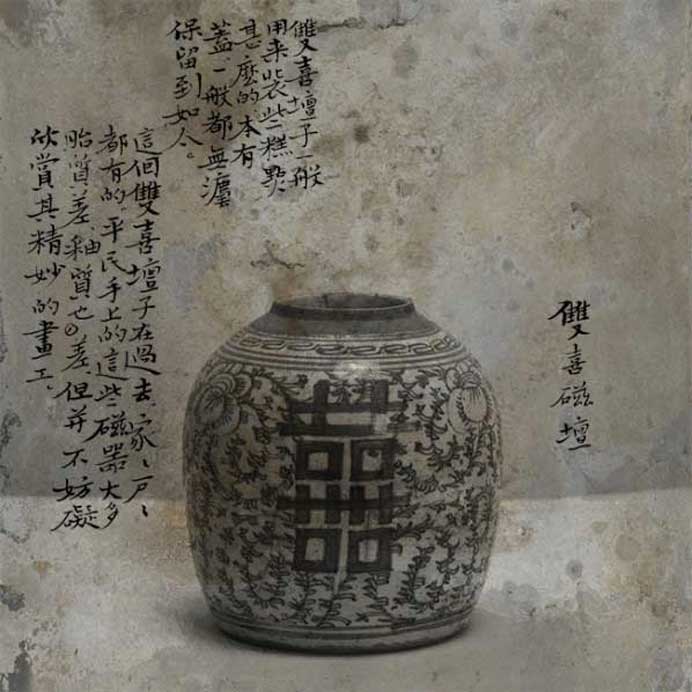 雙喜磁壇
雙喜壇子一般
用来裝些糕點
甚麼的、本有
蓋、一般都無灋
保留到如今。
這個雙喜壇子在過去、家、戶、
都有的。平民手上的這些磁器大多
胎質差、釉質也差、但并不妨礙
欣賞其精妙的畫工、
囍